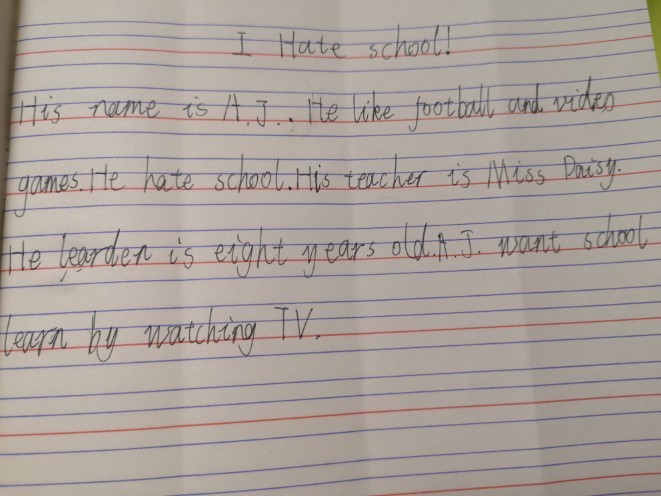 I Hate school!
His name is A.J.. He like football and video
games. He hate school. His teacher is Miss Daisy.
He learden is eight years old. A.J. want school
learn by watching TV.